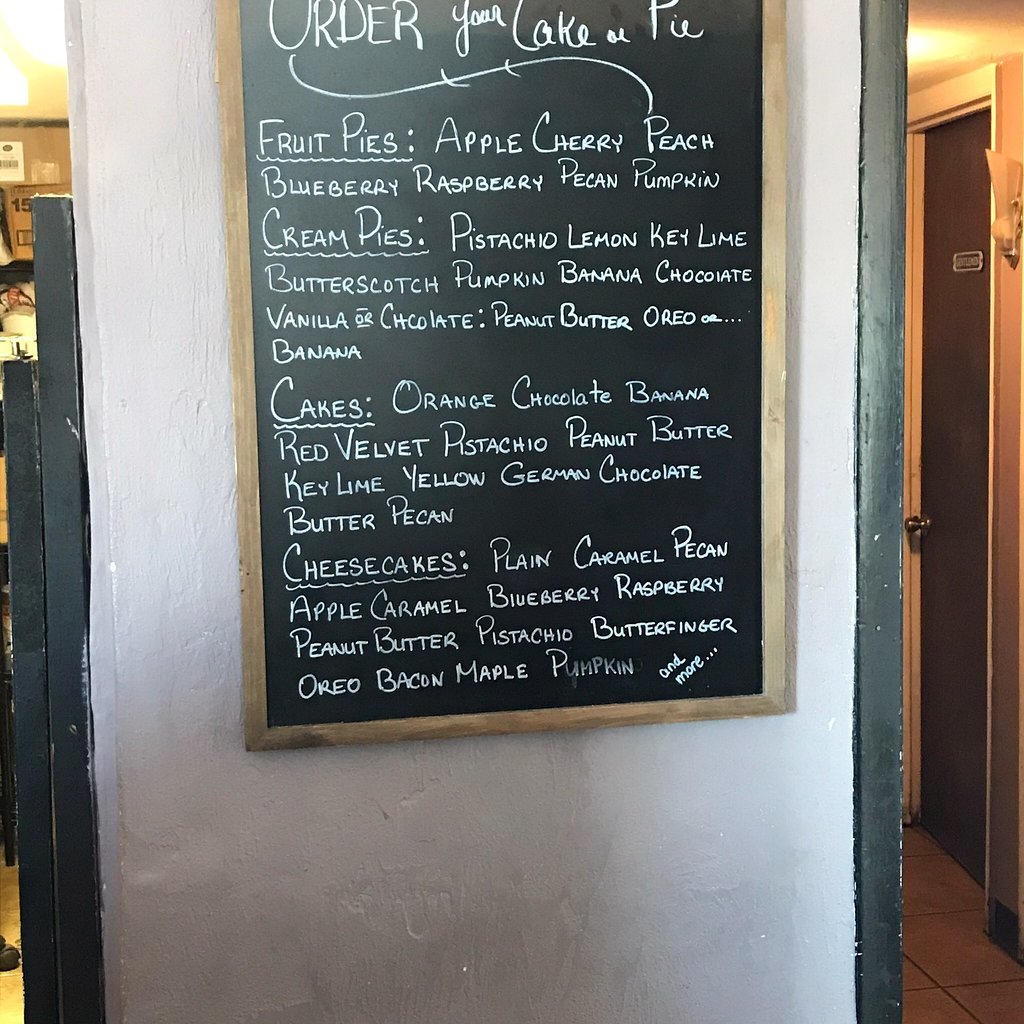 ORDER your Cake or Pie
FRUIT PIES: APPLE CHERRY PEACH
BLUEBERRY RASPBERRY PECAN PUMPKIN
CREAM PIES: PISTACHIO LEMON KEY LIME
BUTTERSCOTCH PUMPKIN BANANA CHOCOLATE
VANILLA OR CHCOLATE: PEANUT BUTTER OREO or...
BANANA
CAKES: ORANGE CHOCOLATE BANANA
RED VELVET PISTACHIO PEANUT BUTTER
KEY LIME YELLOW GERMAN CHOCOLATE
BUTTER PECAN
CHEESECAKES: PLAIN CARAMEL PECAN
APPLE CARAMEL BLUEBERRY RASPBERRY
PEANUT BUTTER PISTACHIO BUTTERFINGER
OREO BACON MAPLE PUMPKIN and
more...
GENTLEMEN
15